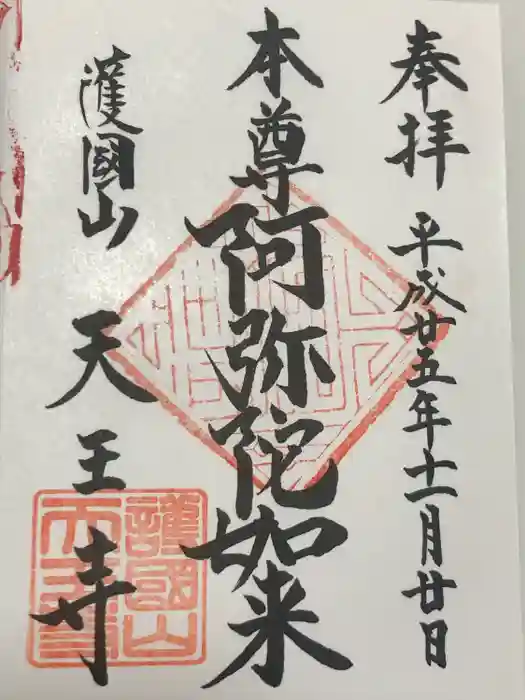 奉拝 平成廿五年十一月廿日
本尊阿弥陀如来
護國山
天王寺
護國山
天王寺